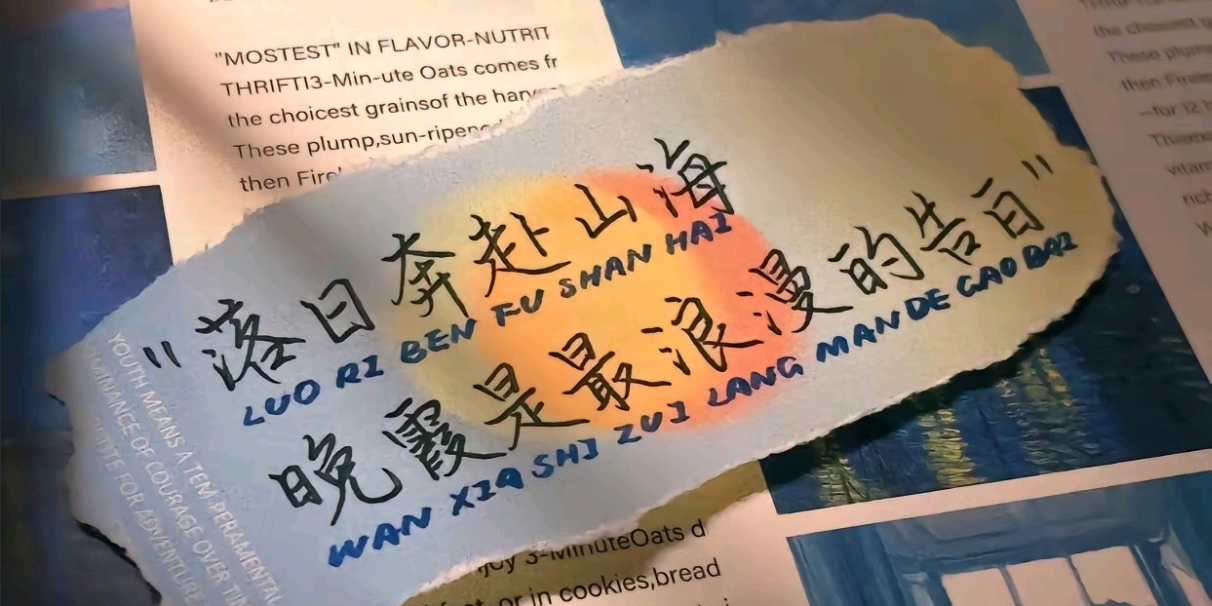 "MOSTEST" IN FLAVOR-NUTRIT
THRIFTI3-Min-ute Oats comes fr
the choicest grainsof the har
These plump,sun-ripen
then Fire
"落日奔赴山海
LUO RI BEN FU SHAN HAI
晚霞是最浪漫的告白"
WAN XIA SHI ZUI LANG MAN DE GAO BAI
YOUTH MEANS A TEM PERAMENTAL
DOMINANCE OF COURAGE OVER TI
FOR ADVENTURE
3-MinuteOats d
or in cookies,bread
the choicest
These plum
then Firele
—for 12 h
Thiami
vitam
rich